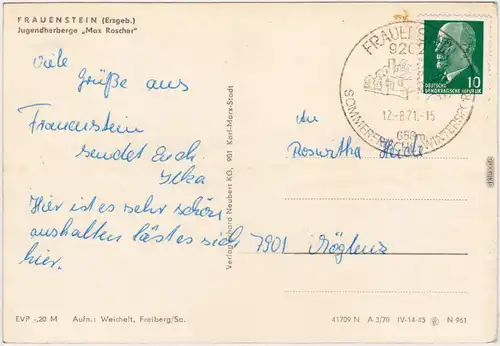 FRAUENSTEIN (Erzgeb.)
Jugendherberge „Max Roscher"
viele
Grüße aus
Frauenstein
sendet Euch
Ilka
Hier ist es sehr schön,
aushalten läst es sich
hier.
Verlag Erhard Neubert KG, 901 Karl-Marx-Stadt
FRAUENSTEIN
9202
12.-8.71.-15
650m
SOMMERFRISCHE WINTERSPORT
10
DEUTSCHE
DEMOKRATISCHE REPUBLIK
An
Roswitha
7901
EVP -,20 M Aufn.: Weichelt, Freiberg/Sa.
41709 N A 3/70 IV-14-45 N 961